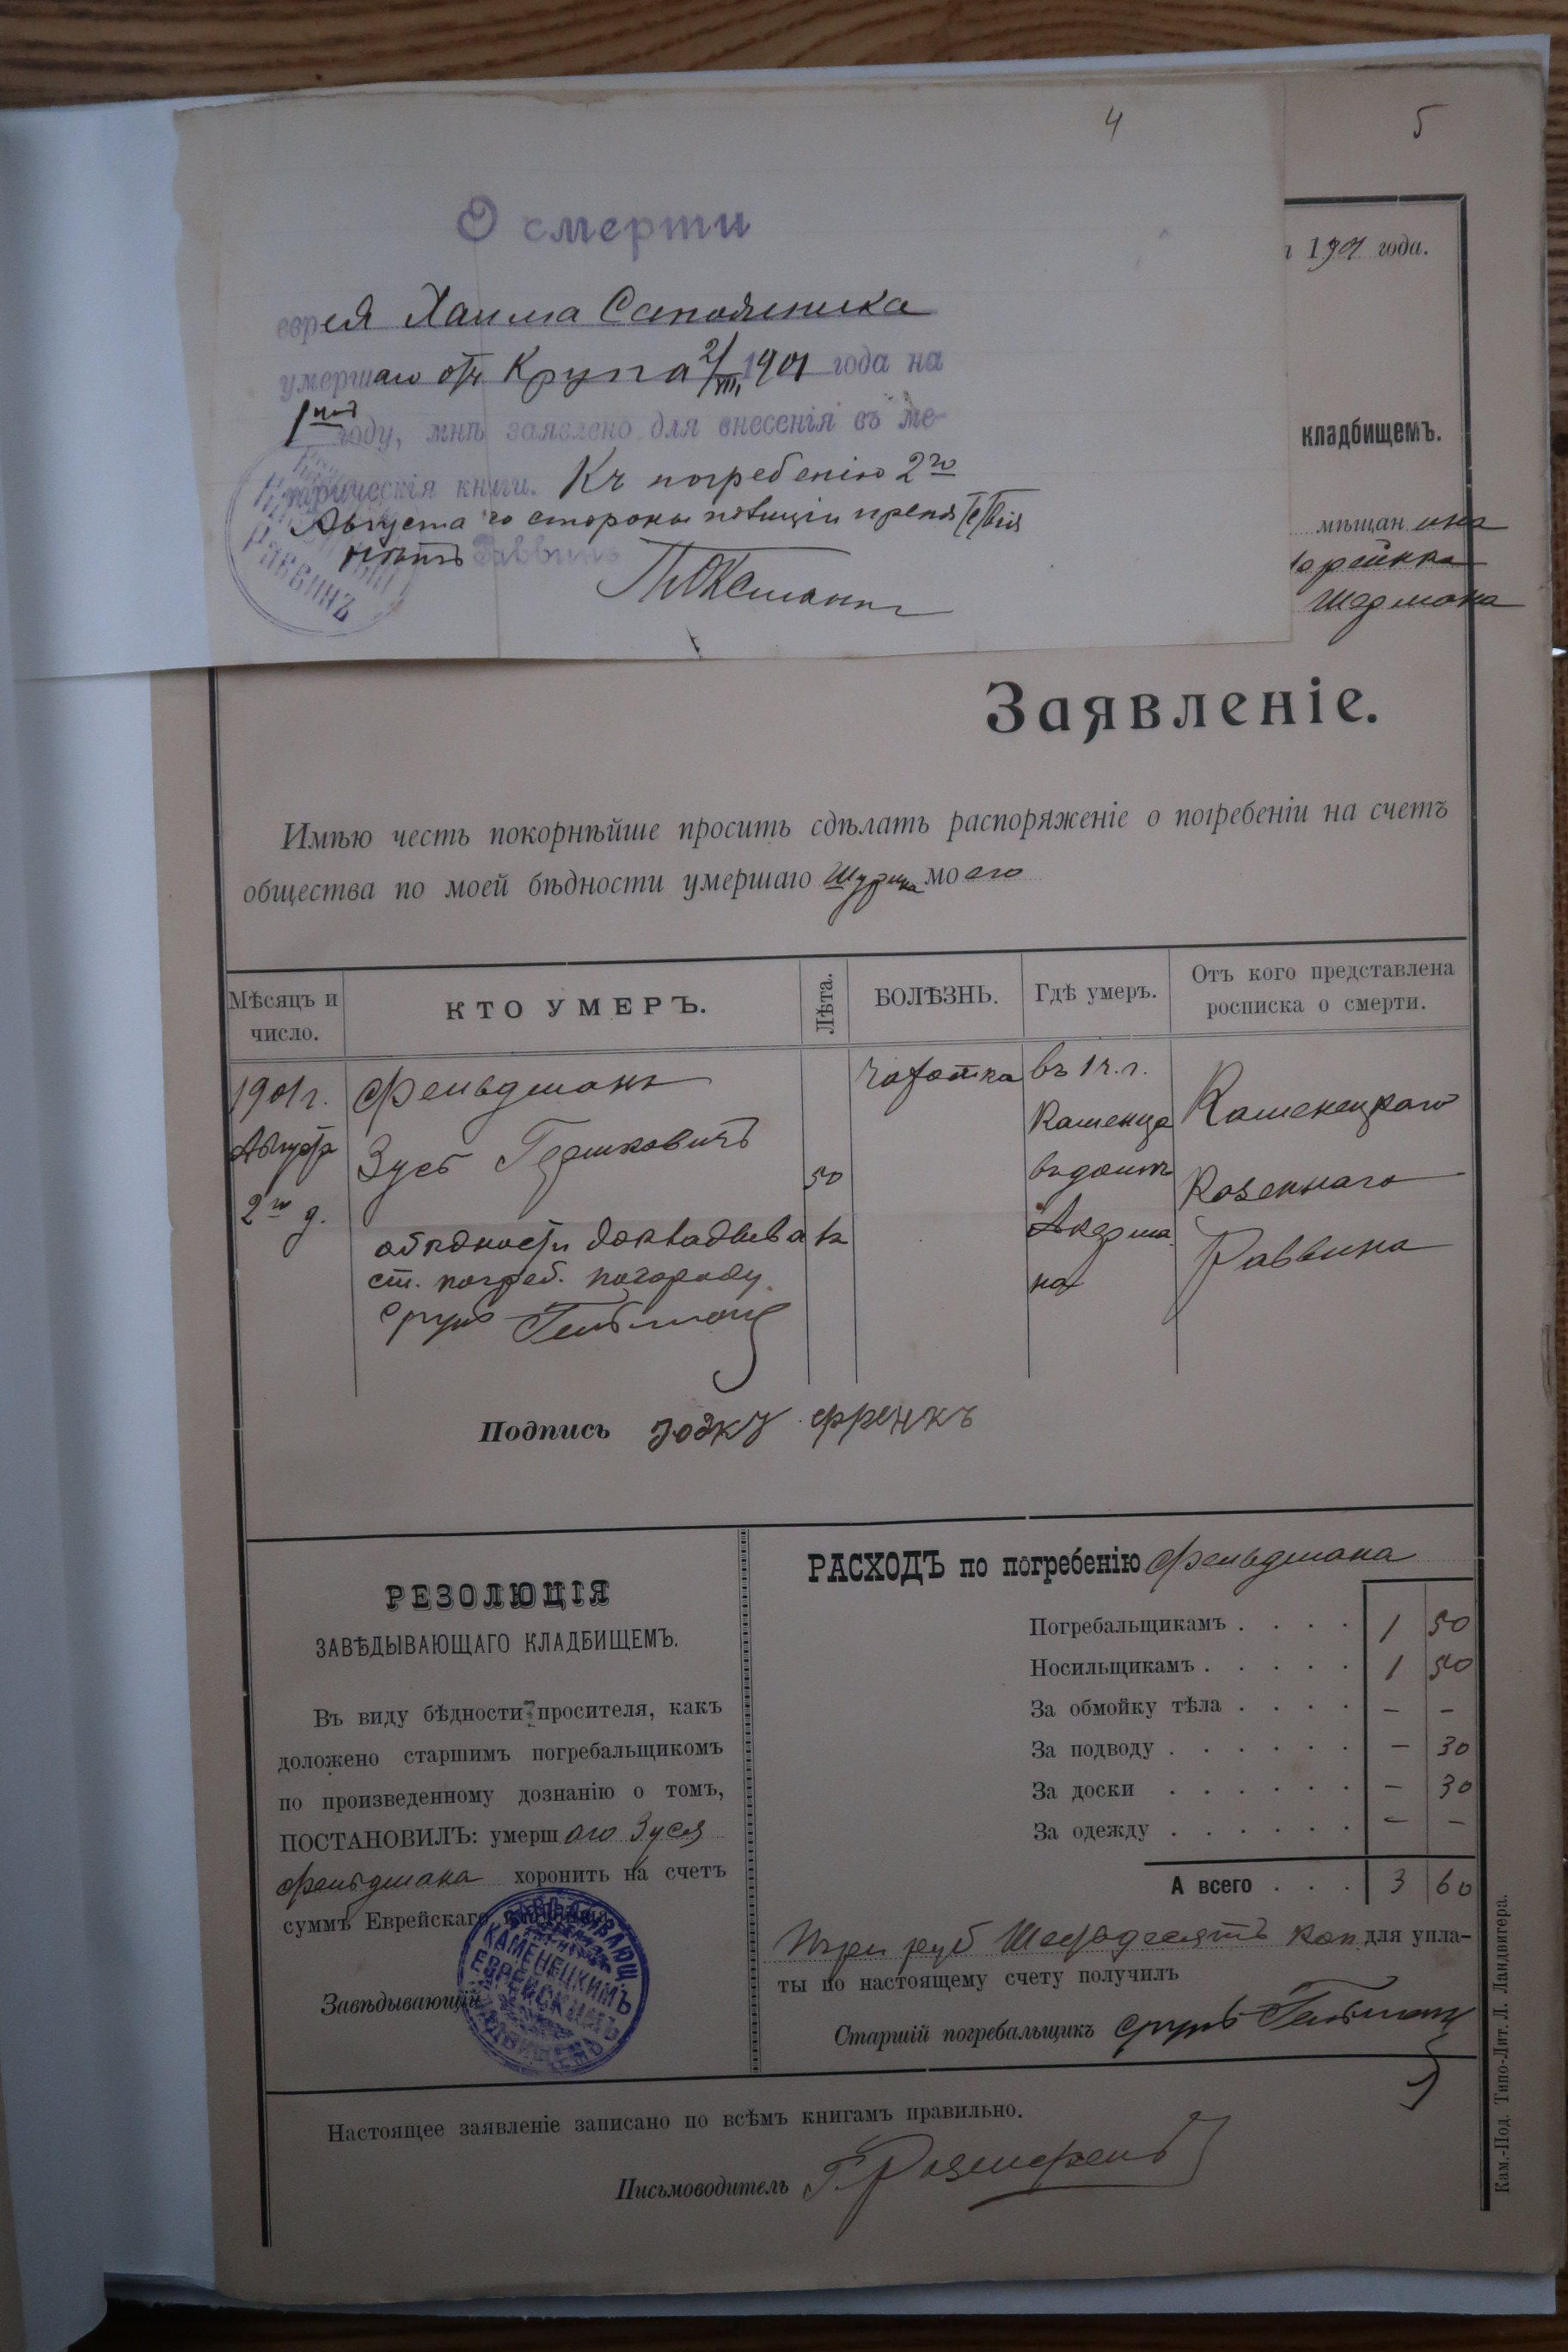 4
5
О смерти
еврея Хаима Сапожника
умершаго отъ Крупа 2/VIII 1901 года на
1мъ году, мнѣ заявлено для внесенія въ ме-
трическія книги. Къ погребенію 2го
Августа со стороны полиціи препятствія
нѣтъ Раввинъ
РАВВИНЪ
1901 года.
кладбищемъ.
мѣщанина
Заявленіе.
Имѣю честь покорнѣйше просить сдѣлать распоряженіе о погребеніи на счетъ
общества по моей бѣдности умершаго Шурина моего
Мѣсяцъ и число.
КТО УМЕРЪ.
Лѣта.
БОЛѢЗНЬ.
Гдѣ умеръ.
Отъ кого представлена росписка о смерти.
1901 г.
Августа
2го д.
Фельдманъ
Зусь Гершковичъ
50
Чахотка
въ 1 ч. г.
Каменца
въ домѣ
Акерма
на
Каменецкаго
Казеннаго
Раввина
о бѣдности докладывалъ
ст. погреб. погораду
Сруль Гельманъ
Подпись френкъ
РЕЗОЛЮЦІЯ
ЗАВѢДЫВАЮЩАГО КЛАДБИЩЕМЪ.
Въ виду бѣдности просителя, какъ
доложено старшимъ погребальщикомъ
по произведенному дознанію о томъ,
ПОСТАНОВИЛЪ: умершаго Зуся
Фельдмана хоронить на счетъ
суммъ Еврейскаго
Завѣдывающій
КАМЕНЕЦКИМЪ
ЕВРЕЙСКИМЪ
РАСХОДЪ по погребенію Фельдмана
Погребальщикамъ . . . . 1 50
Носильщикамъ . . . . . 1 50
За обмойку тѣла . . . . – –
За подводу . . . . . . – 30
За доски . . . . . . – 30
За одежду . . . . . . – –
А всего . . . . 3 60
Три руб Шестьдесятъ коп для упла-
ты по настоящему счету получилъ
Старшій погребальщикъ Сруль Гельманъ
Настоящее заявленіе записано по всѣмъ книгамъ правильно.
Письмоводитель
Кам.-Под. Типо-Лит. Л. Ландвигера.